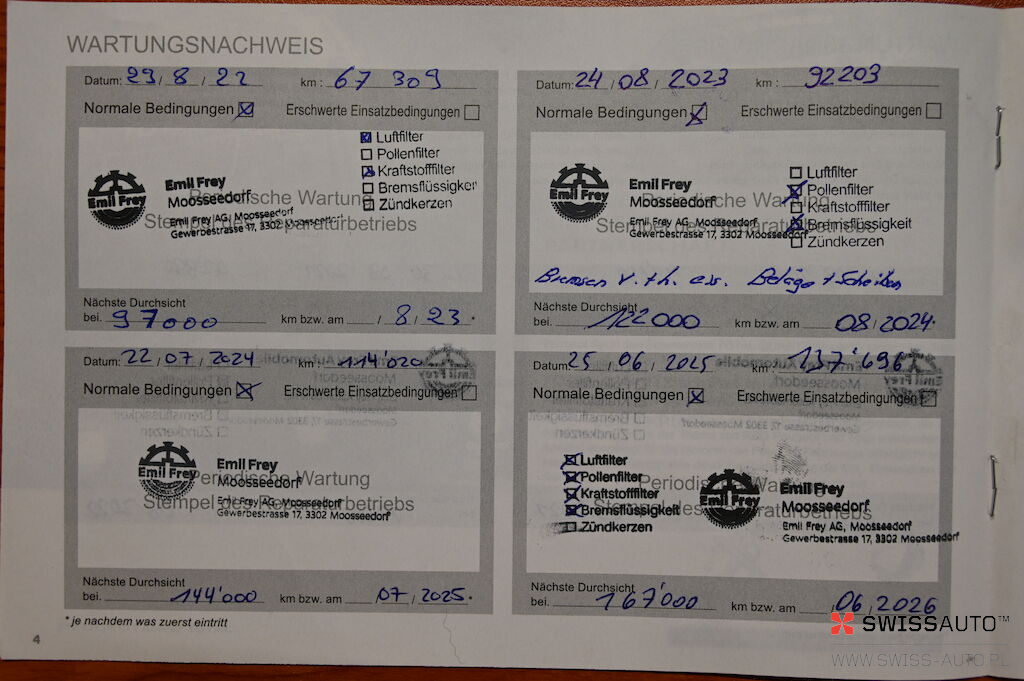 WARTUNGSNACHWEIS
Datum: 29 / 8 / 22 km: 67 309
Normale Bedingungen ☒ Erschwerte Einsatzbedingungen ☐
☒ Luftfilter
☐ Pollenfilter
☒ Kraftstofffilter
☐ Bremsflüssigkeit
☐ Zündkerzen
Emil Frey
Emil Frey
Moosseedorf
Emil Frey AG, Moosseedorf
Gewerbestrasse 17, 3302 Moosseedorf
Periodische Wartung
Stempel des Reparaturbetriebs
Nächste Durchsicht
bei. 97000 km bzw. am / 8 / 23.
Datum: 24 / 08 / 2023 km: 92203
Normale Bedingungen ☒ Erschwerte Einsatzbedingungen ☐
☐ Luftfilter
☒ Pollenfilter
☐ Kraftstofffilter
☒ Bremsflüssigkeit
☐ Zündkerzen
Emil Frey
Emil Frey
Moosseedorf
Emil Frey AG, Moosseedorf
Gewerbestrasse 17, 3302 Moosseedorf
Periodische Wartung
Stempel des Reparaturbetriebs
Bremsen v. + h. ers. Beläge + Scheiben
Nächste Durchsicht
bei. 122000 km bzw. am 08 / 2024.
Datum: 22 / 07 / 2024 km: 114'020
Normale Bedingungen ☒ Erschwerte Einsatzbedingungen ☐
Emil Frey
Emil Frey
Moosseedorf
Emil Frey AG, Moosseedorf
Gewerbestrasse 17, 3302 Moosseedorf
Periodische Wartung
Stempel des Reparaturbetriebs
Nächste Durchsicht
bei. 144'000 km bzw. am 07 / 2025.
Datum: 25 / 06 / 2025 km: 137'696
Normale Bedingungen ☒ Erschwerte Einsatzbedingungen ☐
☒ Luftfilter
☒ Pollenfilter
☒ Kraftstofffilter
☒ Bremsflüssigkeit
☐ Zündkerzen
Emil Frey
Emil Frey
Moosseedorf
Emil Frey AG, Moosseedorf
Gewerbestrasse 17, 3302 Moosseedorf
Periodische Wartung
Stempel des Reparaturbetriebs
Nächste Durchsicht
bei. 167'000 km bzw. am 06 / 2026
* je nachdem was zuerst eintritt
4
SWISSAUTO™
WWW.SWISS-AUTO.PL